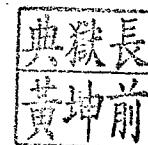 典獄長
黃坤前